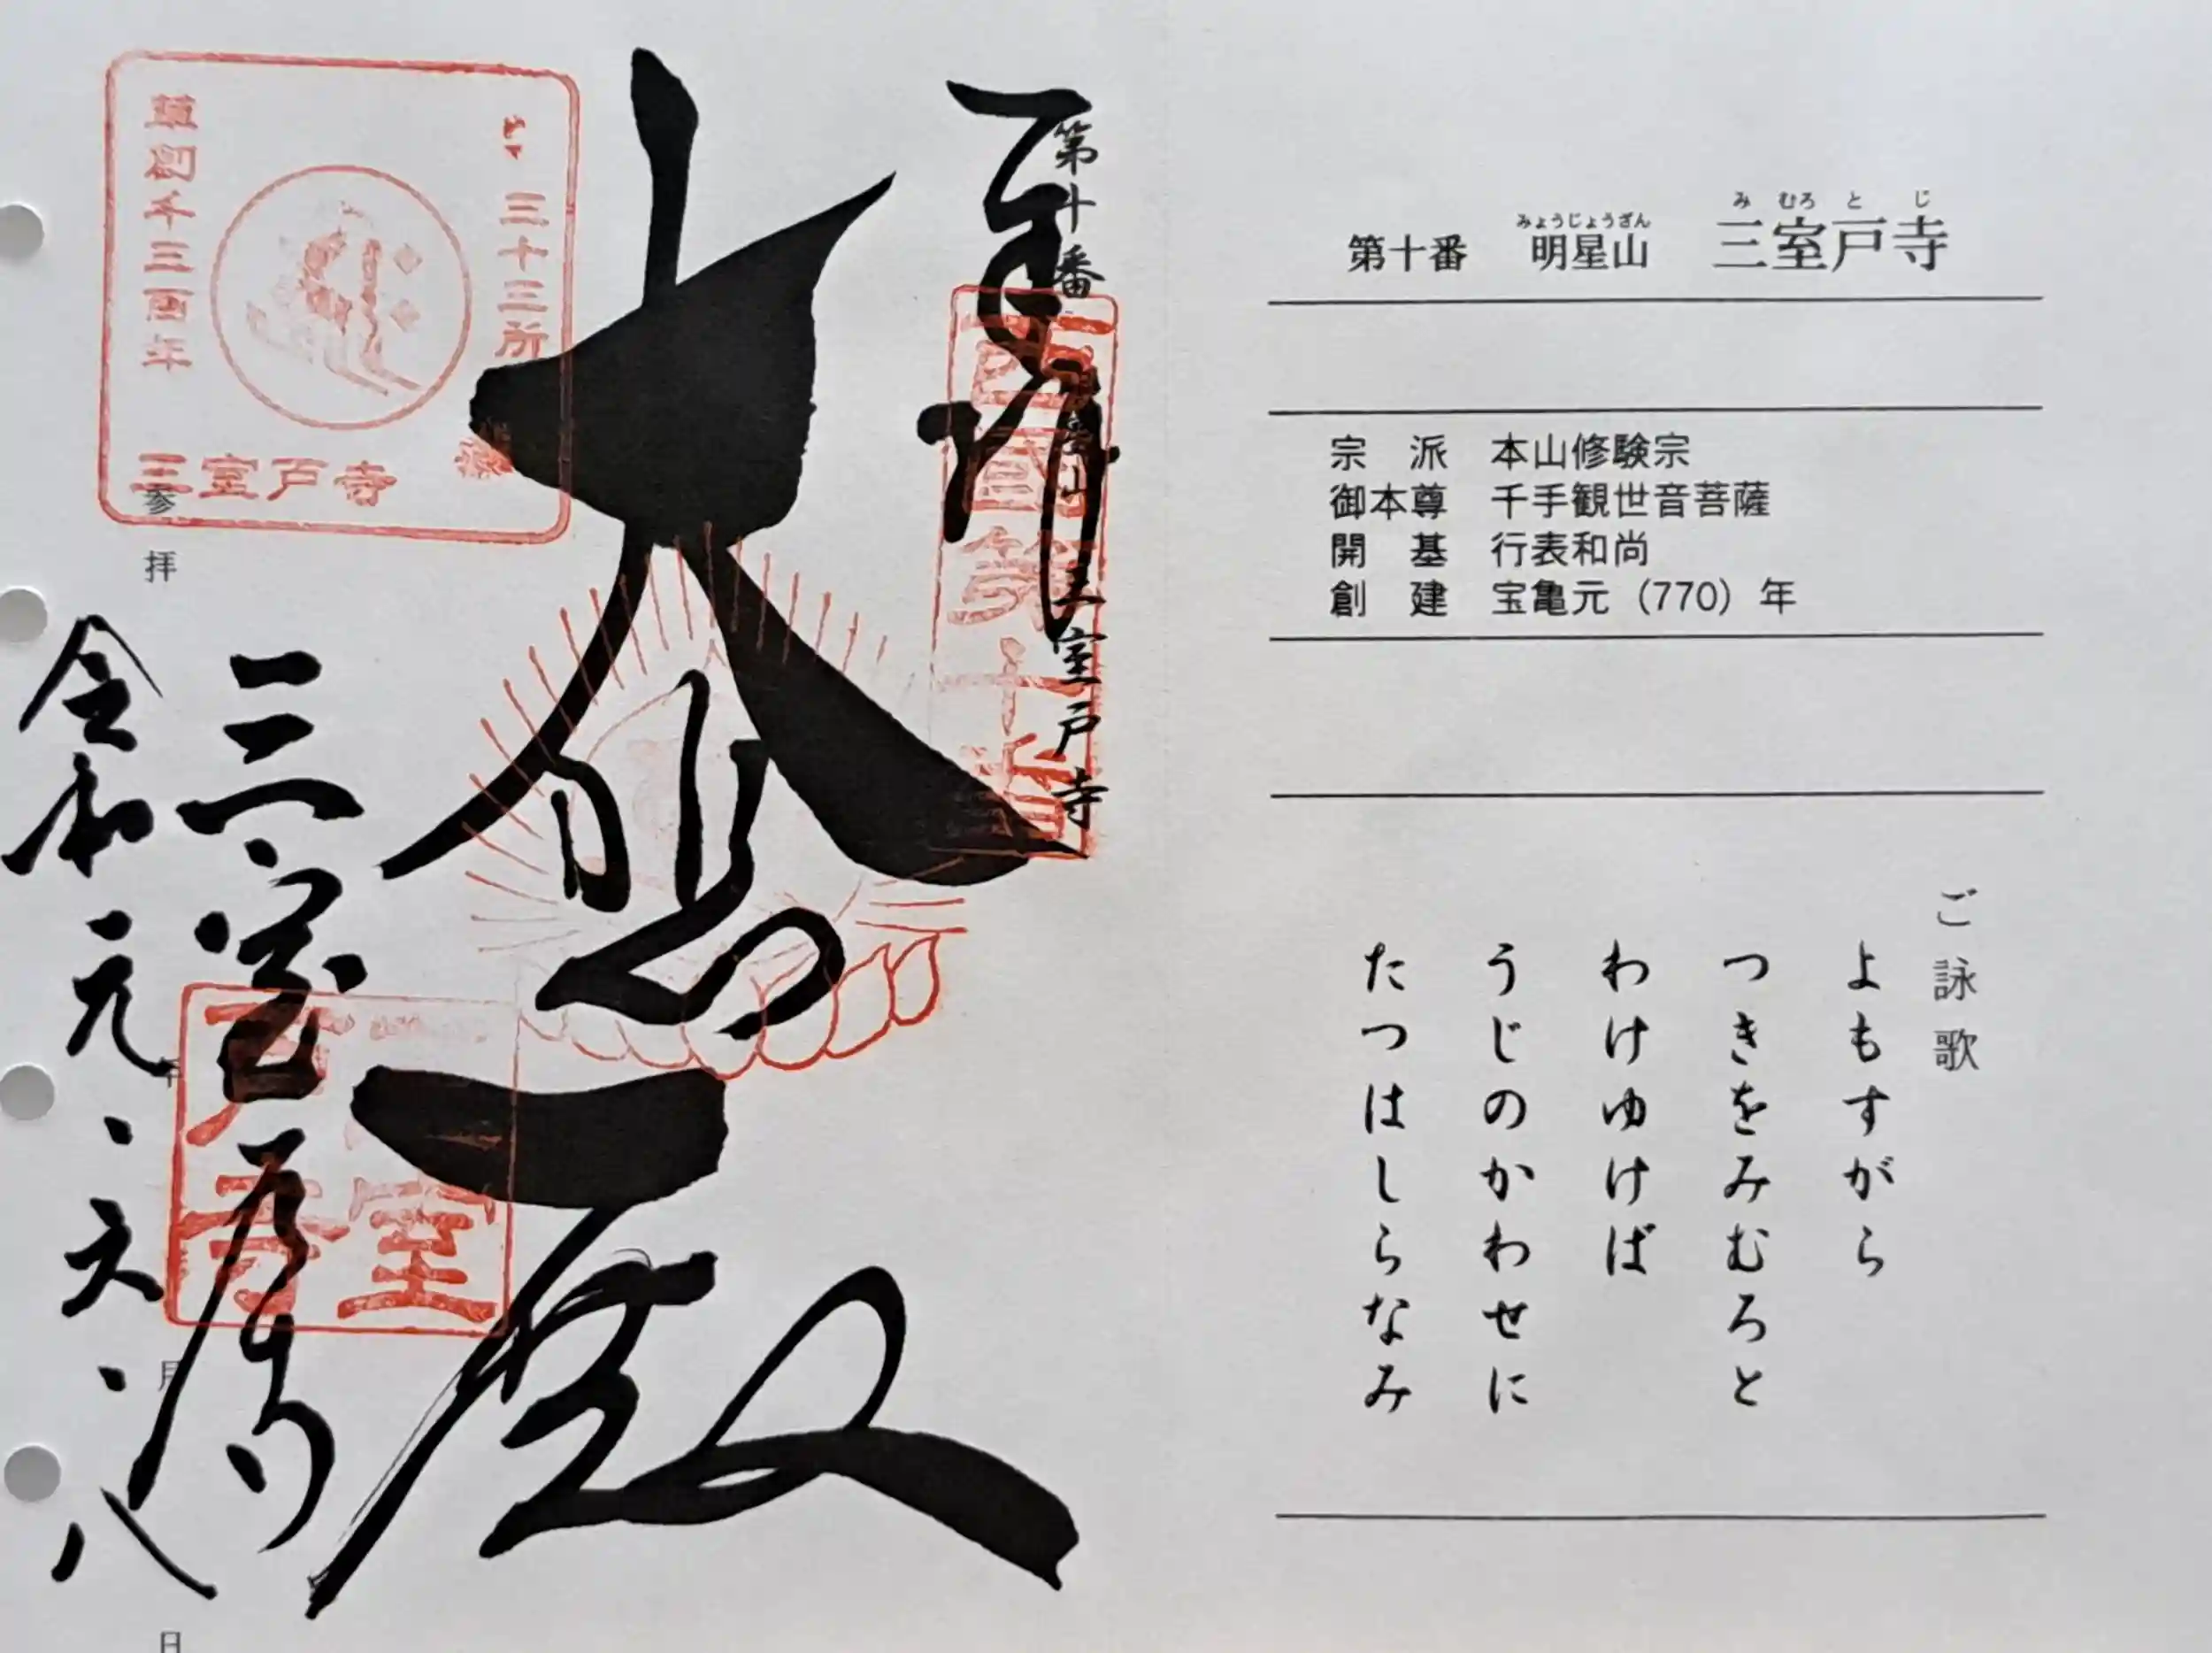 第十番 明星山 三室戸寺
みょうじょうざん みむろとじ
宗派 本山修験宗
御本尊 千手観世音菩薩
開基 行表和尚
創建 宝亀元（770）年
ご詠歌
よもすがら
つきをみむろと
わけゆけば
うじのかわせに
たつはしらなみ
第十番
三室戸寺
奉拝
西国第十番
大悲殿
三十三所
草創千三百年
三室戸寺
三室戸寺
室戸寺
参拝
令和元、六、八
年
月
日